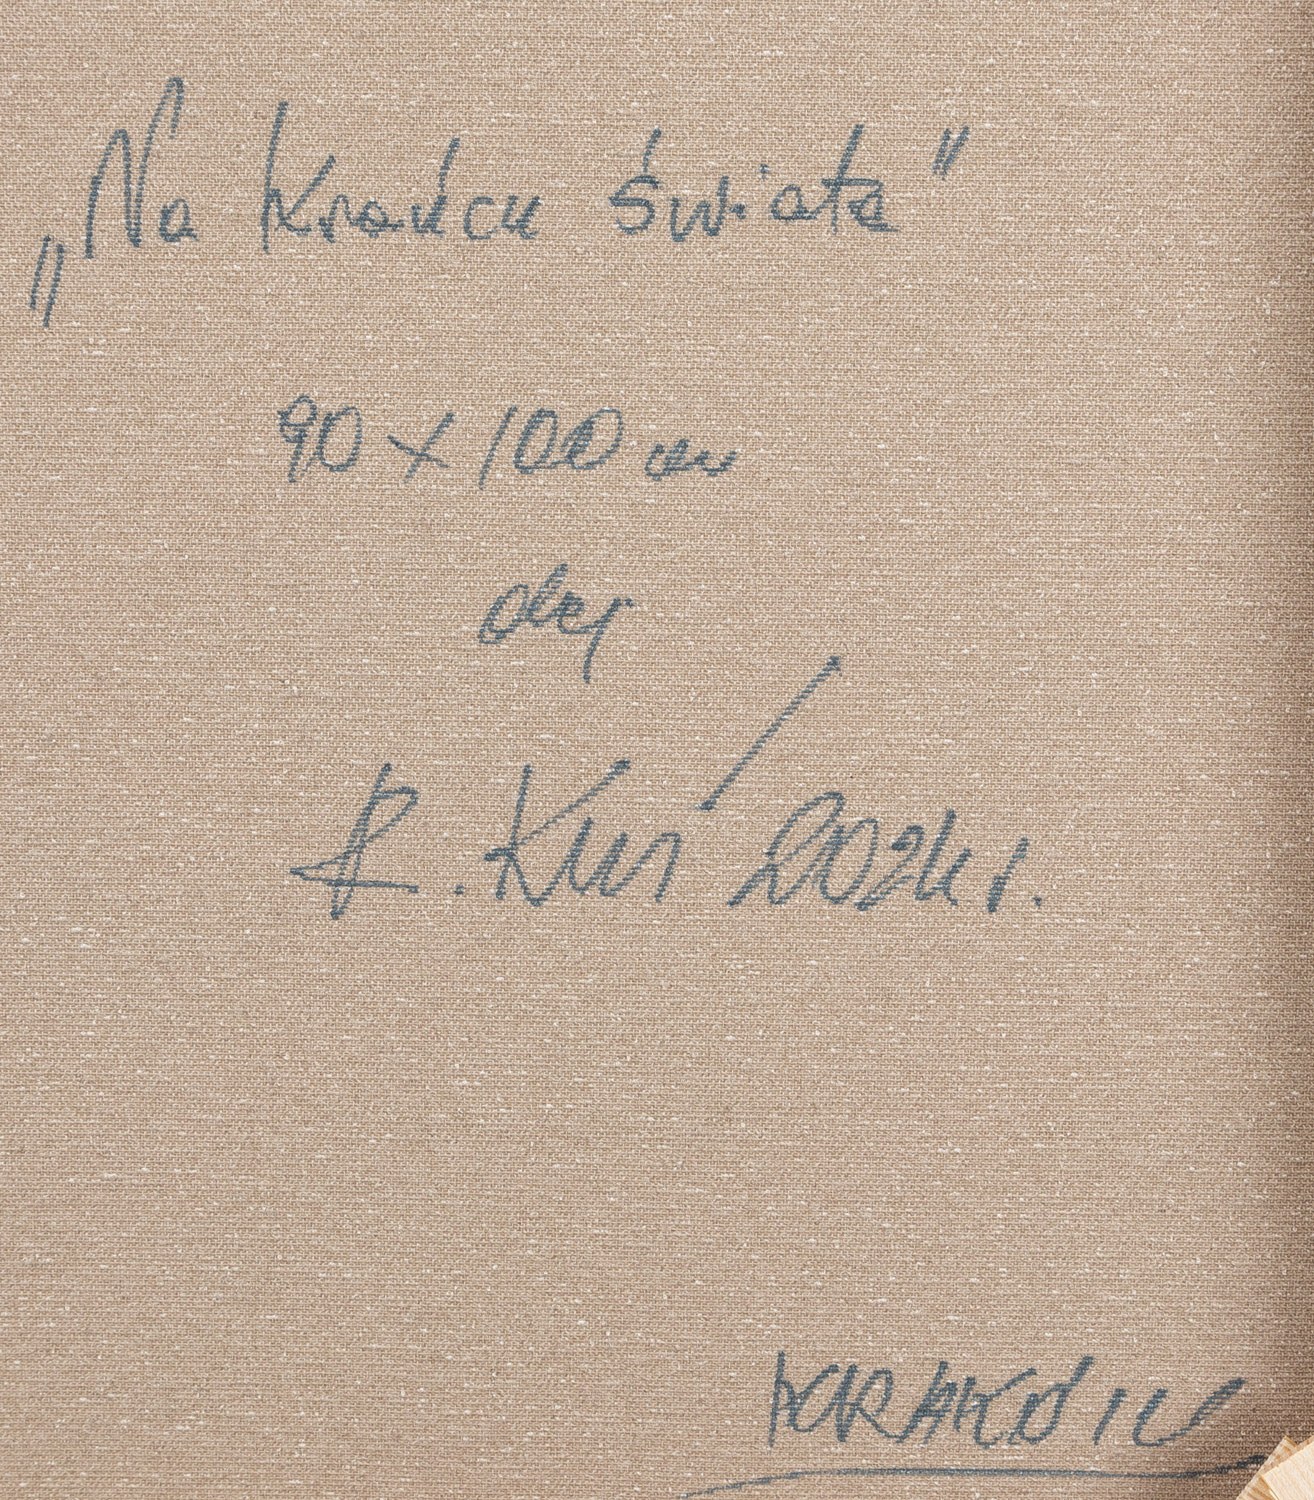 „Na krańcu świata"
90 x 100 cm
olej
R. Kuś 2024 r.
KRAKÓW